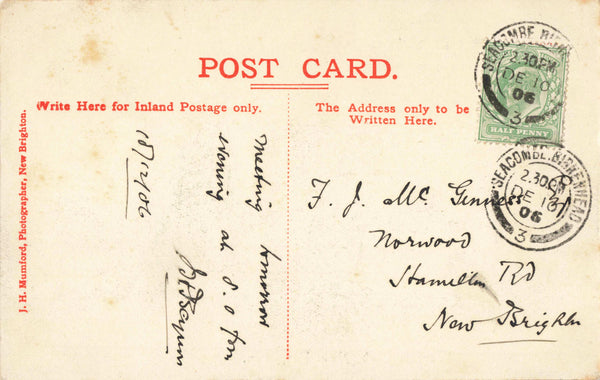 POST CARD.
Write Here for Inland Postage only.
The Address only to be
Written Here.
J. H. Mumford, Photographer, New Brighton.
18/12/06
Meeting tomorrow
evening at 8.0 pm
F. J. Mc Genness
Norwood
Hamilton Rd
New Brighton
HALF PENNY
SEACOMBE. BIRKENHEAD
2.30PM
DE 18
06
3
SEACOMBE. BIRKENHEAD
2.30PM
DE 18
06
3